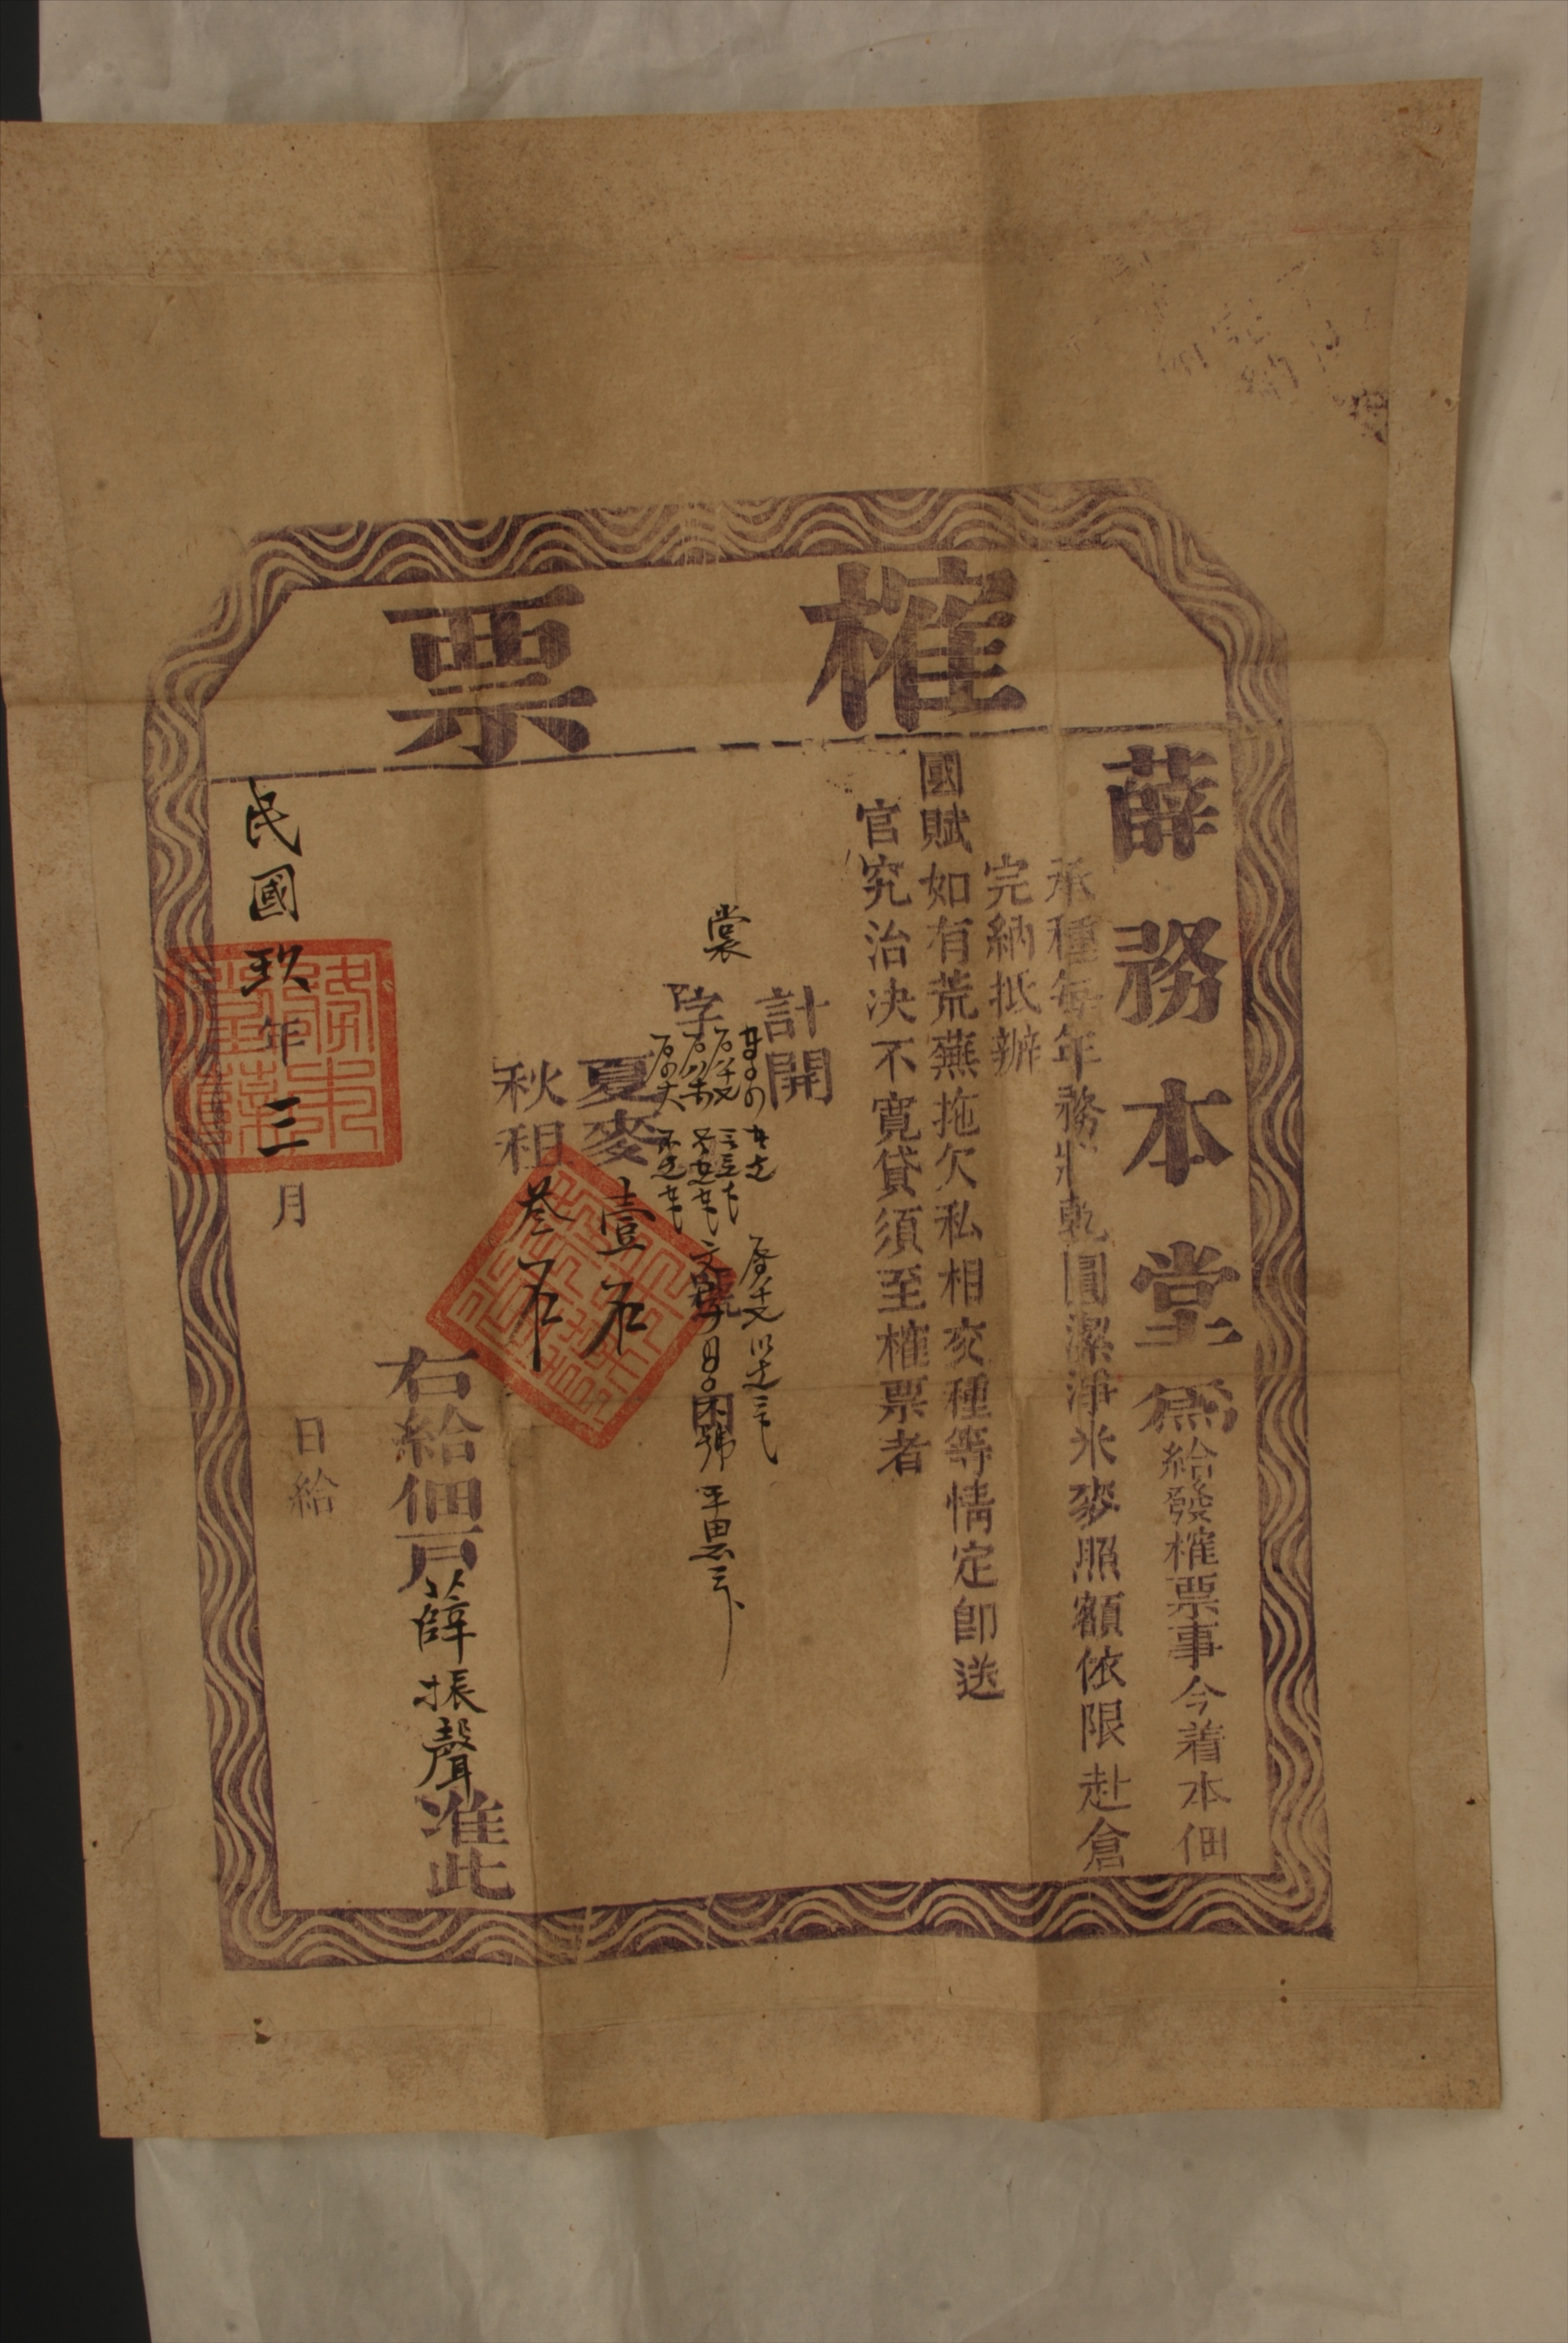 榷票
薛務本堂爲給發榷票事今着本佃
承種每年務將乾圓潔淨米麥照額依限赴倉
完納抵辦
國賦如有荒蕪拖欠私相交種等情定即送
官究治決不寬貸須至榷票者
計開
裳字號平田
夏麥壹石
秋租叄石
右給佃戶薛振聲准此
民國玖年三月
日給